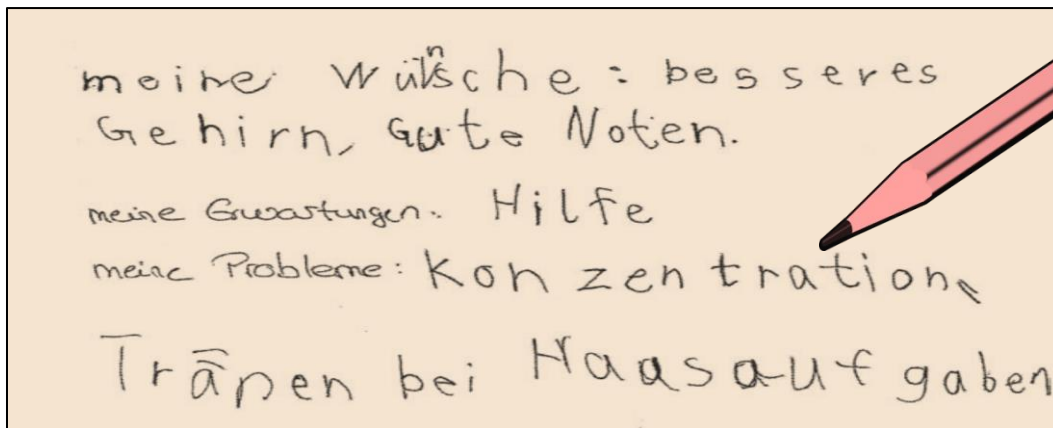 meine Wünsche: besseres
Gehirn, Gute Noten.
meine Erwartungen: Hilfe
meine Probleme: Konzentration,
Tränen bei Haasaufgaben